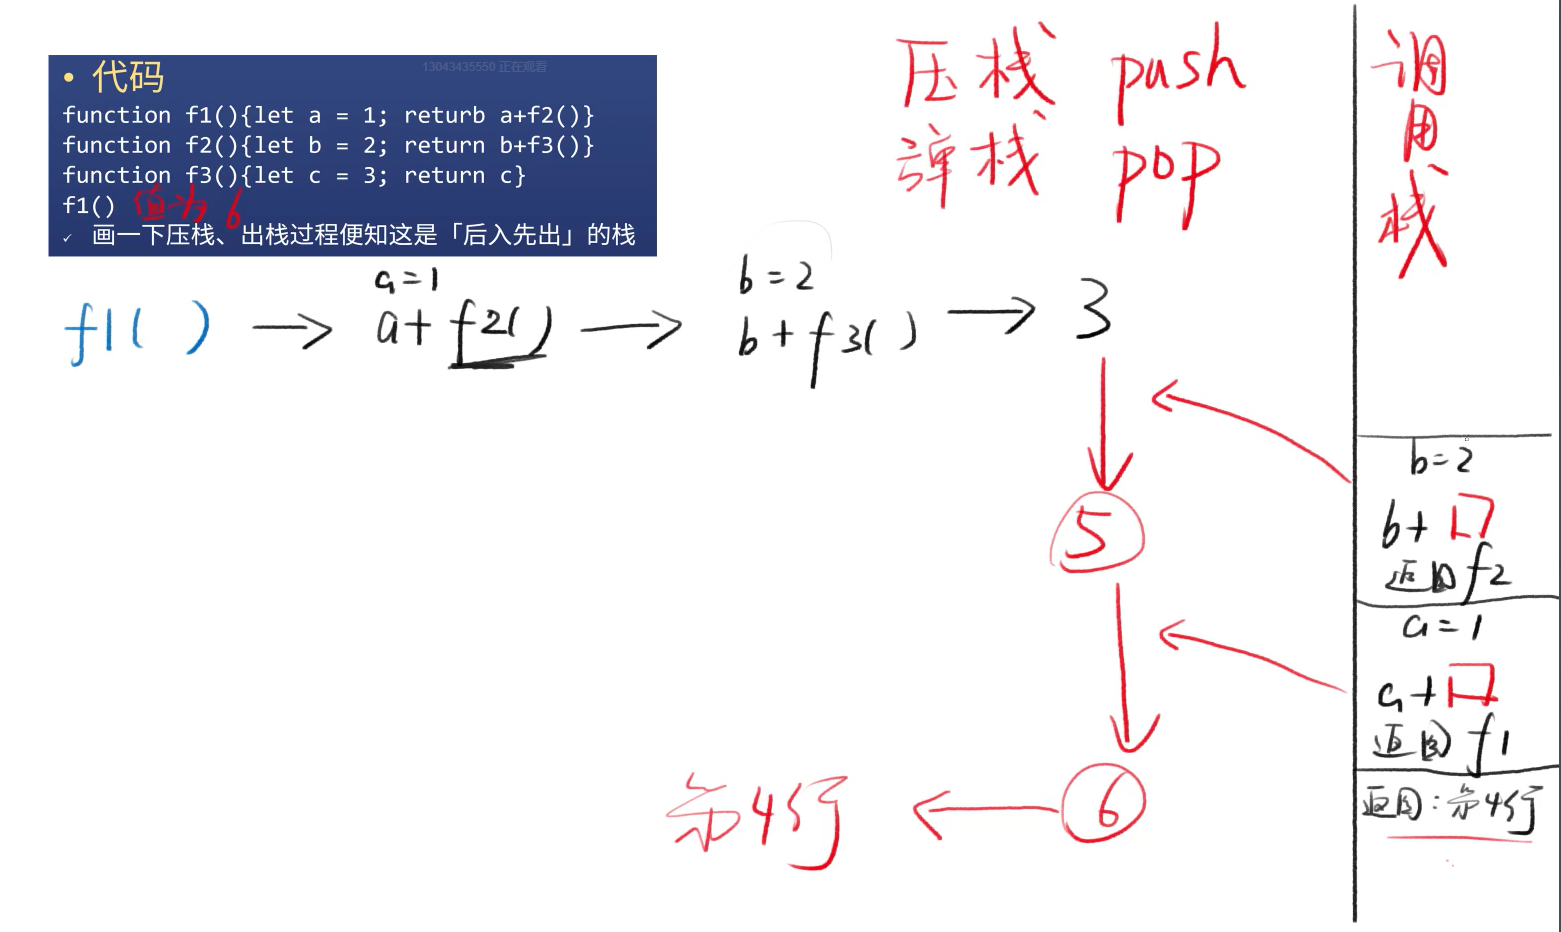 • 代码
13043435550 正在观看
function f1(){let a = 1; returb a+f2()}
function f2(){let b = 2; return b+f3()}
function f3(){let c = 3; return c}
f1() 值为 6
✓ 画一下压栈、出栈过程便知这是「后入先出」的栈
压栈 push
弹栈 pop
调用栈
a=1
b=2
f1( ) → a+f2() → b+f3( ) → 3
5
6
第4行
b=2
b+口
返回f2
a=1
a+口
返回 f1
返回:第4行